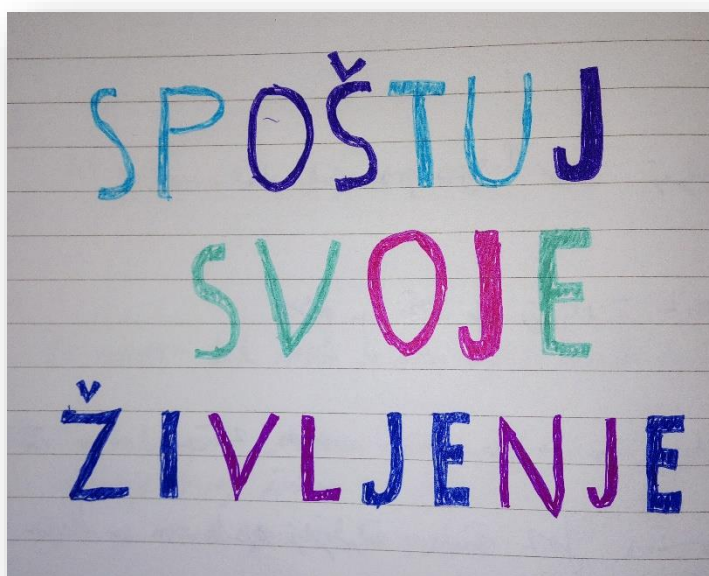 SPOŠTUJ
SVOJE
ŽIVLJENJE